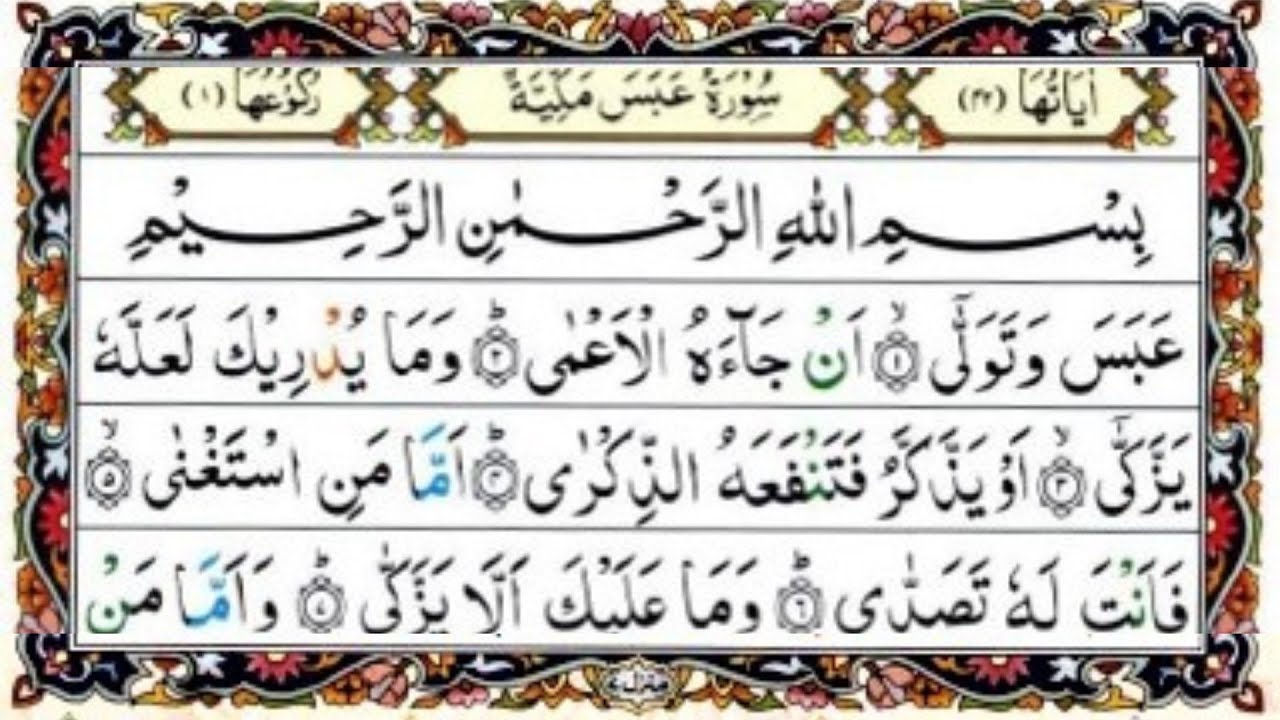 اٰيَاتُهَا (٤٢) سُوْرَةُ عَبَسَ مَكِّيَّةٌ رُكُوْعُهَا (١)
بِسْمِ اللّٰهِ الرَّحْمٰنِ الرَّحِيْمِ
عَبَسَ وَتَوَلّٰٓى ۙ﴿١﴾ اَنْ جَآءَهُ الْاَعْمٰى ؕ﴿٢﴾ وَمَا يُدْرِيْكَ لَعَلَّهٗ
يَزَّكّٰٓى ۙ﴿٣﴾ اَوْ يَذَّكَّرُ فَتَنْفَعَهُ الذِّكْرٰى ؕ﴿٤﴾ اَمَّا مَنِ اسْتَغْنٰى ۙ﴿٥﴾
فَاَنْتَ لَهٗ تَصَدّٰى ؕ﴿٦﴾ وَمَا عَلَيْكَ اَلَّا يَزَّكّٰى ؕ﴿٧﴾ وَاَمَّا مَنْ